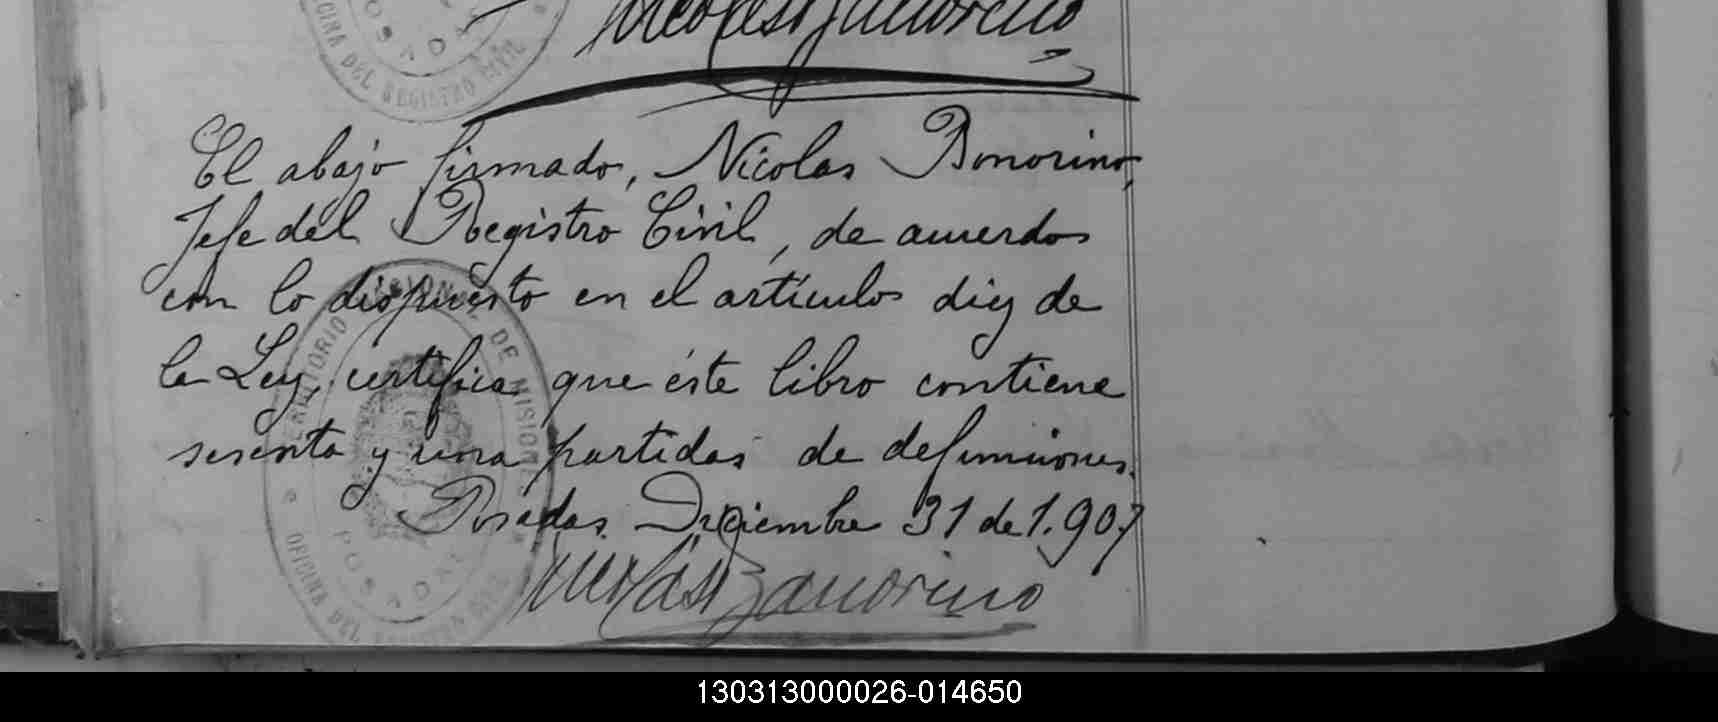 OFICINA DEL REGISTRO CIVIL
POSADAS
El abajo firmado, Nicolas Bonorino,
Jefe del Registro Civil, de acuerdo
con lo dispuesto en el artículo diez de
la Ley, certifica que éste libro contiene
sesenta y una partidas de defunciones.
Posadas, Diciembre 31 de 1.907
TERRITORIO NACIONAL DE MISIONES
POSADAS
OFICINA DEL REGISTRO CIVIL
Nicolás Bonorino
130313000026-014650